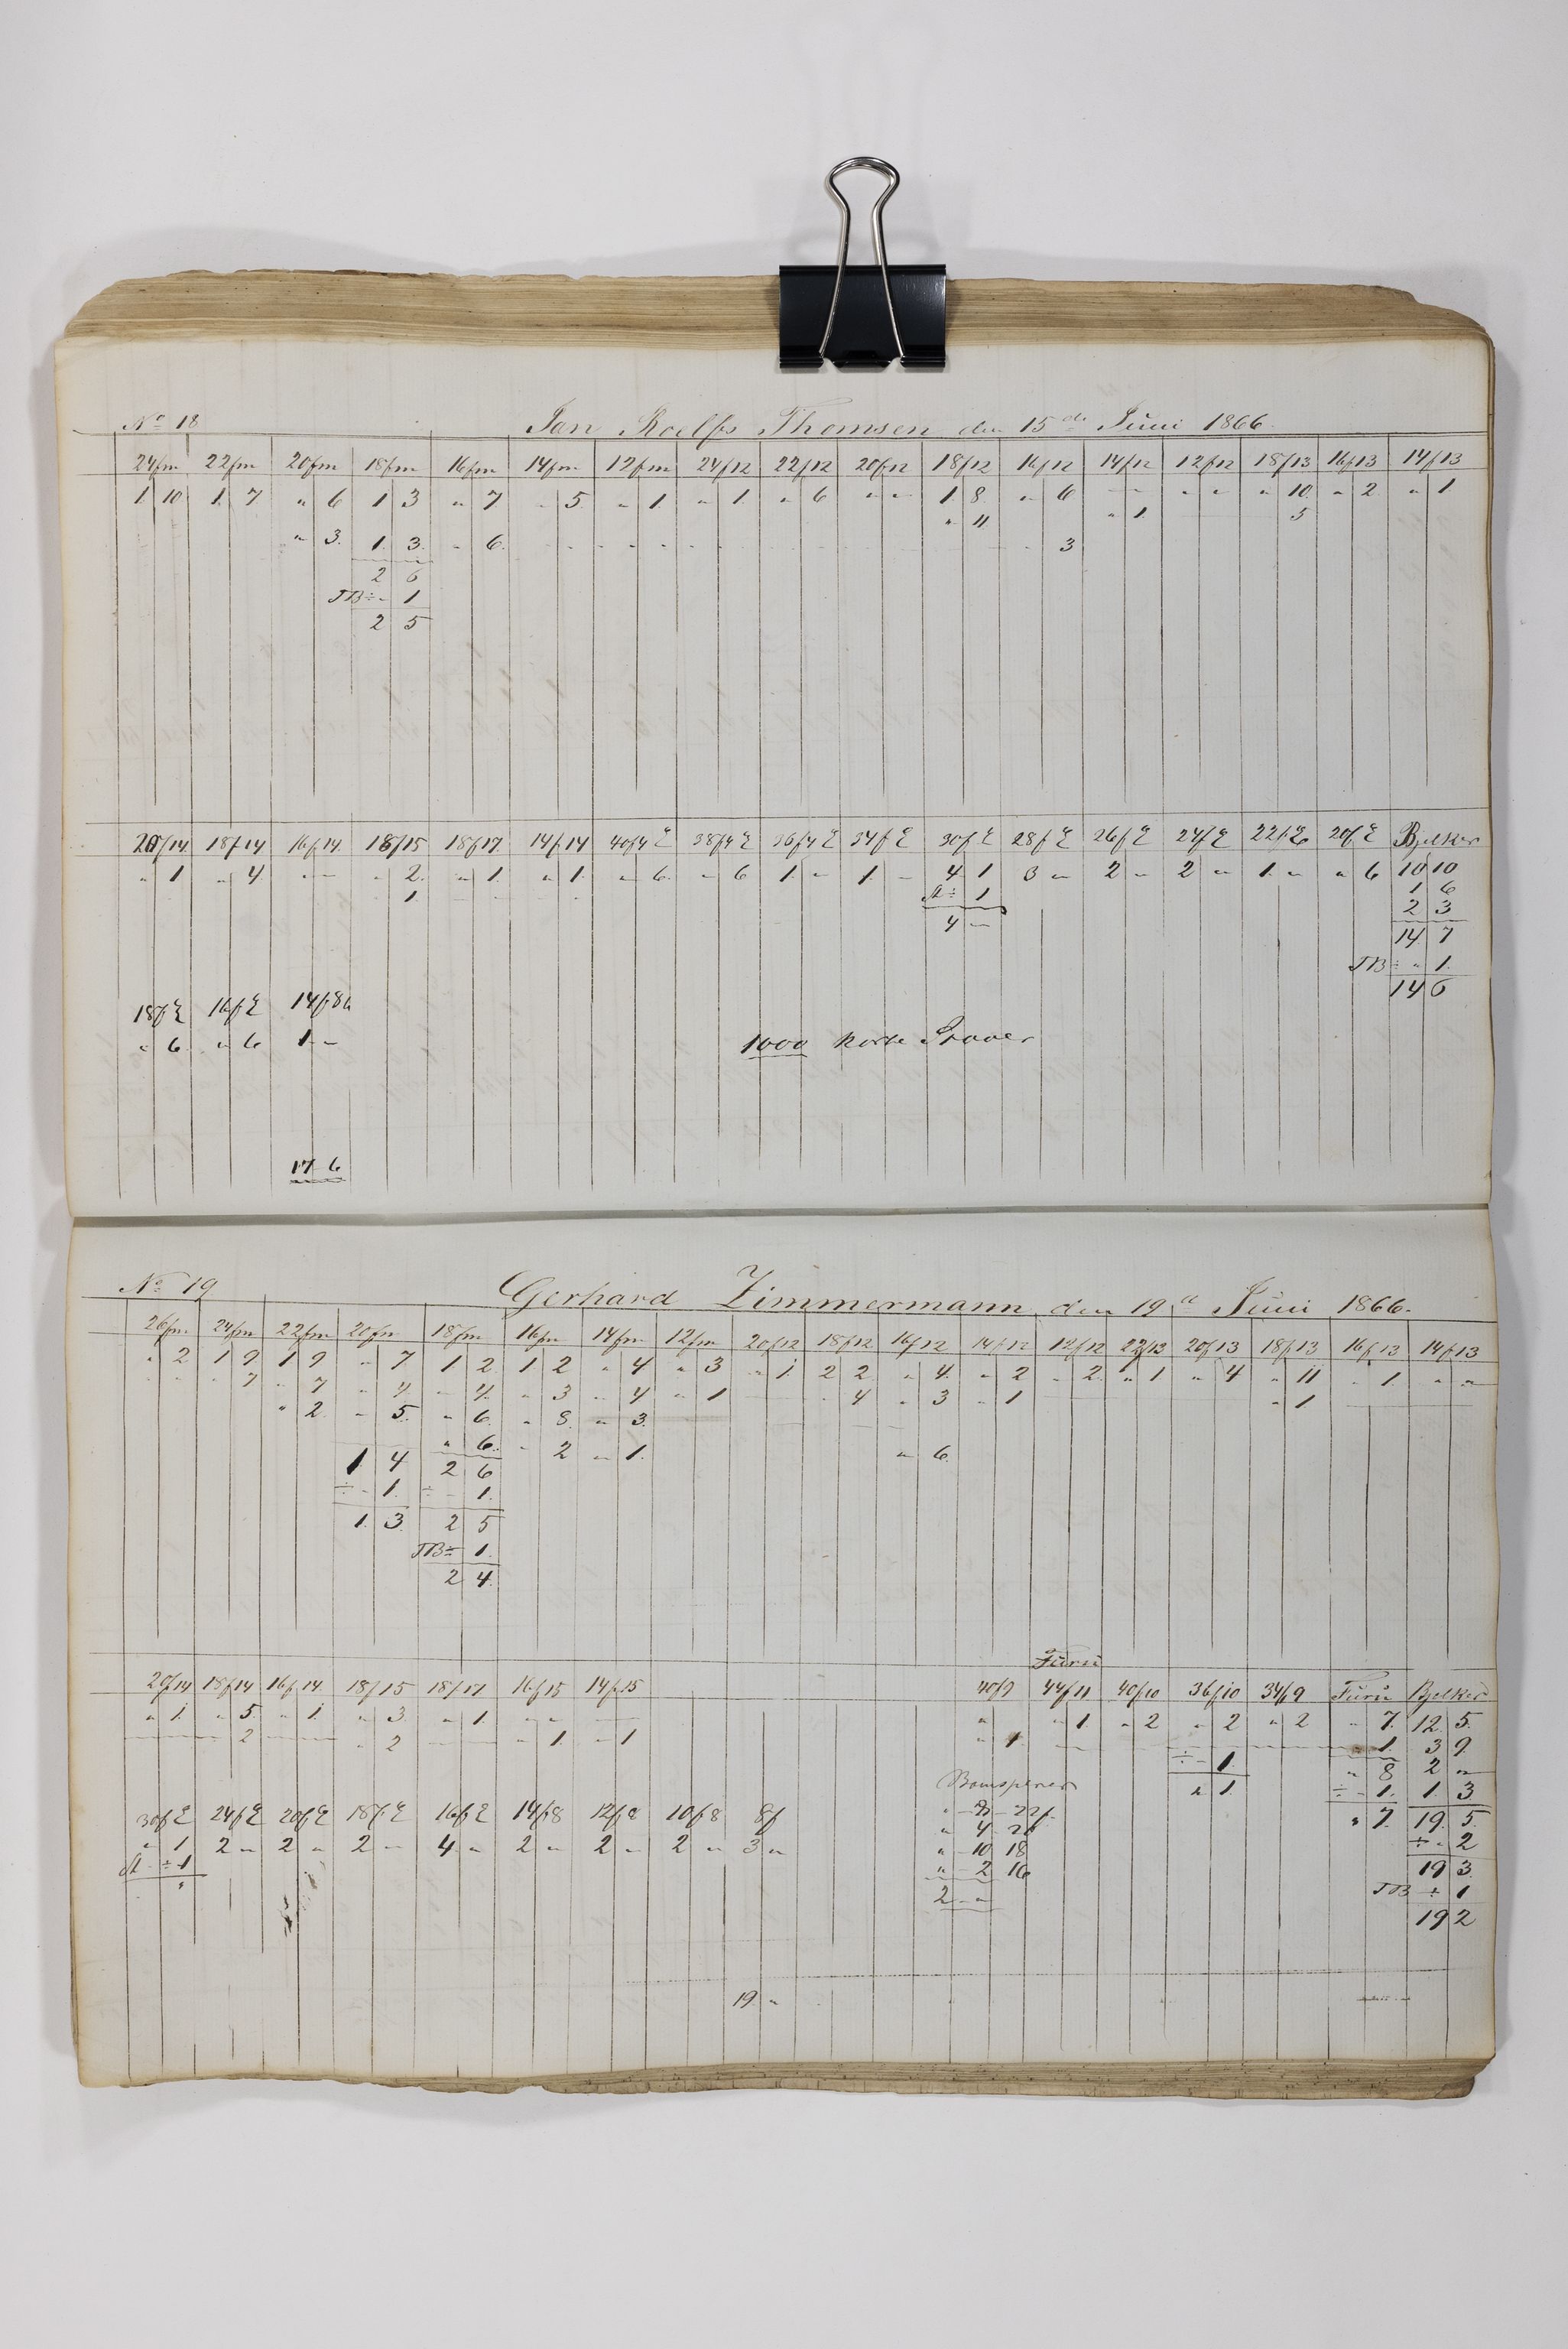 No 18 Jan Roelfs Thomsen den 15de Juni 1866.
24fm 22fm 20fm 18fm 16fm 14fm 12fm 24f12 22f12 20f12 18f12 16f12 14f12 12f12 18f13 16f13 14f13
1 10 1 7 " 6 1 3 " 7 " 5 " 1 " 1 " 6 " " 1 8 " 6 " " " " " 10 " 2 " 1
" 11 " 1 5
" 3 1 3 " 6 3
2 6
TB ÷ " 1
2 5
20f14 18f14 16f14 18f15 18f17 14f14 40f4 38f4 36f4 34f 30f 28f 26f 24f 22f 20f Bjelker
" 1 " 4 " " " 2 " 1 " 1 " 6 " 6 1 " 1 " 4 1 3 " 2 " 2 " 1 " " 6 10 10
1 ÷ 1 1 6
4 " 2 3
14 7
TB ÷ " 1
14 6
18f 16f 14f8
" 6 " 6 1 "
1000 korte
17 6
No 19 Gerhard Zimmermann den 19de Juni 1866.
26fm 24fm 22fm 20fm 18fm 16fm 14fm 12fm 20f12 18f12 16f12 14f12 12f12 22f13 20f13 18f13 16f13 14f13
" 2 1 9 1 9 " 7 1 2 1 2 " 4 " 3 " 1 2 2 " 4 " 2 " 2 " 1 " 4 " 11 " 1 " "
" 7 " 7 " 4 " 4 " 3 " 4 " 1 " 4 " 3 " 1 " 1
" 2 " 5 " 6 " 8 " 3
" 6 " 2 " 1 " 6
1 4 2 6
÷ " 1 ÷ " 1
1 3 2 5
TB ÷ 1
2 4
Furu
20f14 18f14 16f14 18f15 18f17 16f15 14f15 40f9 44f11 40f10 36f10 34f9 Furu Bjelker
" 1 " 5 " 1 " 3 " 1 " " " " 1 " 2 " 2 " 2 " 7 12 5
2 " 2 " 1 " 1 " 1 1 3 9
÷ " 1 " 8 2 "
Bomspirer " 1 ÷ " 1 1 3
30f 24f 20f 18f 16f 14f8 12f8 10f8 8f " 8 22f " 7 19 5
" 1 2 " 2 " 2 " 4 " 2 " 2 " 2 " 3 " " 4 20 ÷ " 2
÷ 1 " 10 18 19 3
" 2 16 TB ÷ 1
2 " " 19 2
19 "